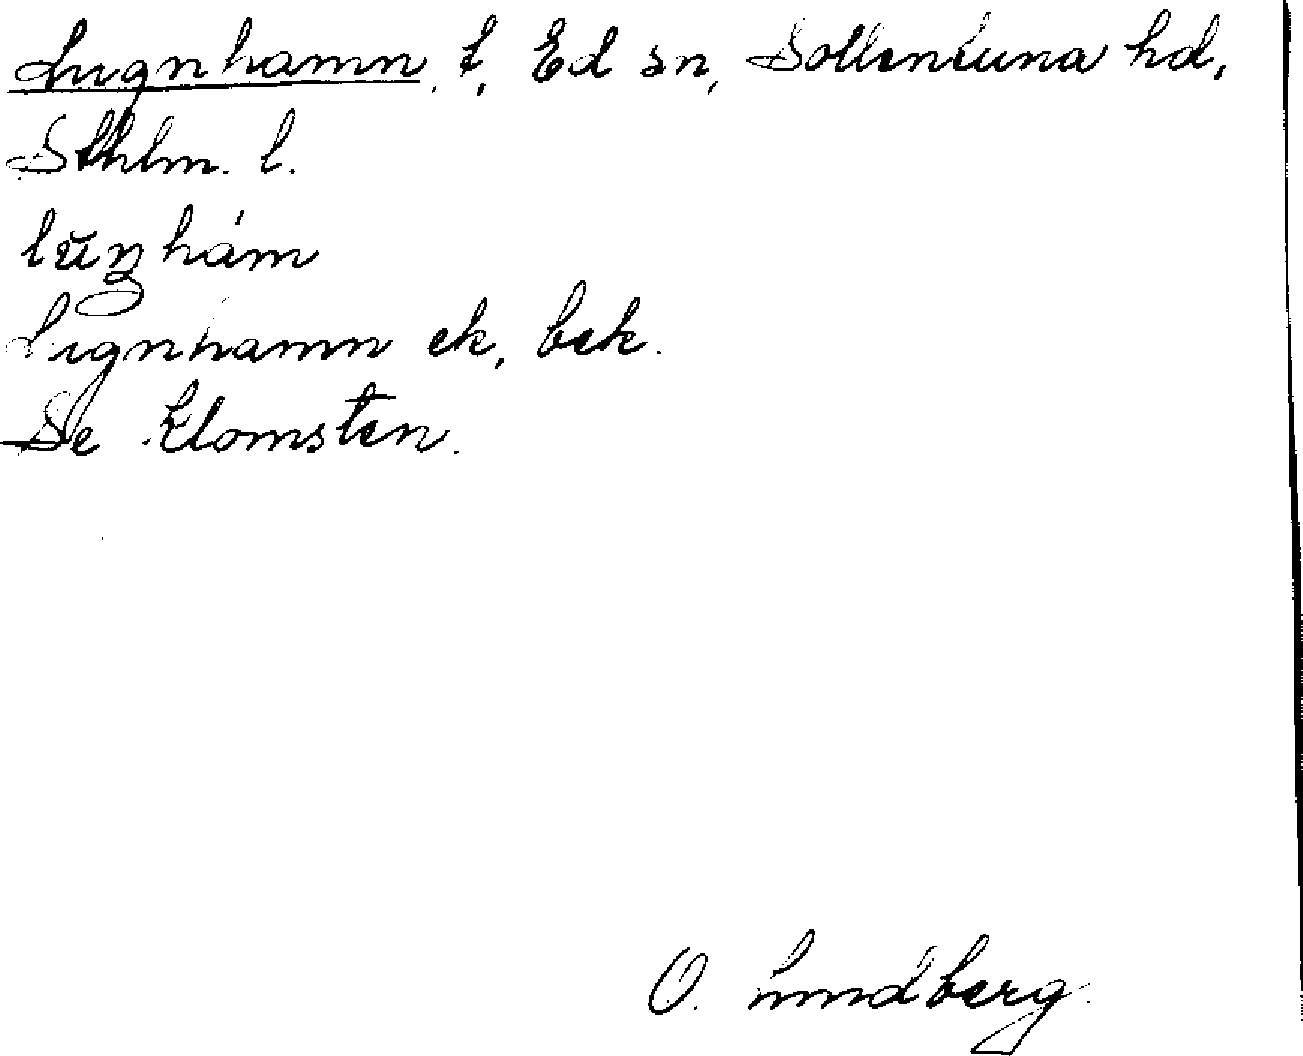 Lugnhamn, t, Ed sn, Sollentuna hd,
Sthlm. l.
Lugnhamn ek, bek.
Se Klomsten.
O. Lundberg.